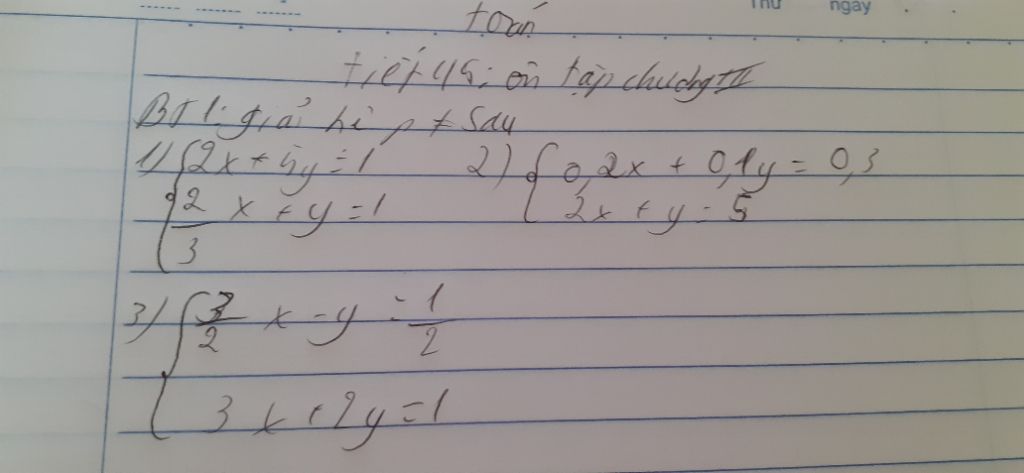 Thứ ngày
toán
tiết 45: ôn tập chương III
BT1: giải hệ pt sau
1) { 2x + 5y = 1 2) { 0,2x + 0,1y = 0,3
2/3 x + y = 1 2x + y = 5
3) { 3/2 x - y = 1/2
3x + 2y = 1